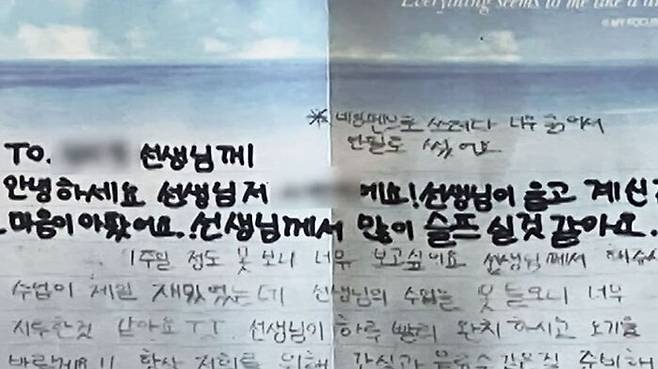 Everything seems to me like a
© MY FOCUS
* 네임펜으로 쓰려다 너무 굵어서
연필로 썼어요
TO. 선생님께
안녕하세요 선생님 저 에요! 선생님이 울고 계신
마음이 아팠어요. 선생님께서 많이 슬프실것 같아요.
1주일 정도 못 보니 너무 보고싶어요 선생님께서 해주시
수업이 제일 재밌었는데 선생님의 수업을 못 들으니 너무
지루한것 같아요 ㅠㅠ. 선생님이 하루 빨리 완치 하시고 오기를
바랄게요!! 항상 저희를 위해 간식과 음료수 같은걸 준비해